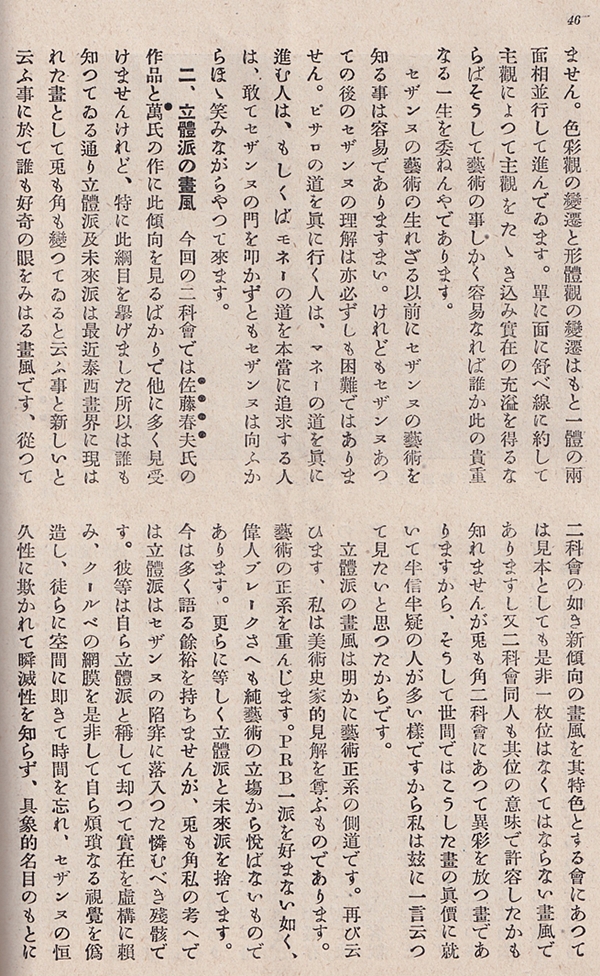 46
ません。色彩觀の變遷と形體觀の變遷はもと一體の兩
面相並行して進んでゐます。單に面に舒べ線に約して
主觀によつて主觀をたゝき込み實在の充溢を得るな
らばそうして藝術の事しかく容易なれば誰か此の貴重
なる一生を委ねんやであります。
セザンヌの藝術の生れざる以前にセザンヌの藝術を
知る事は容易でありますまい。けれどもセザンヌあつ
ての後のセザンヌの理解は亦必ずしも困難ではありま
せん。ピサロの道を眞に行く人は、マネーの道を眞に
進む人は、もしくばモネーの道を本當に追求する人
は、敢てセザンヌの門を叩かずともセザンヌは向ふか
らほゝ笑みながらやつて來ます。
二、立體派の畫風 今回の二科會では佐藤春夫氏の
作品と萬氏の作に此傾向を見るばかりで他に多く見受
けませんけれど、特に此綱目を擧げました所以は誰も
知つてゐる通り立體派及未來派は最近泰西畫界に現は
れた畫として兎も角も變つてゐると云ふ事と新しいと
云ふ事に於て誰も好奇の眼をみはる畫風です、從つて
二科會の如き新傾向の畫風を其特色とする會にあつて
は見本としても是非一枚位はなくてはならない畫風で
ありますし又二科會同人も其位の意味で許容したかも
知れませんが兎も角二科會にあつて異彩を放つ畫であ
りますから、そうして世間ではこうした畫の眞價に就
いて半信半疑の人が多い樣ですから私は玆に一言云つ
て見たいと思つたからです。
立體派の畫風は明かに藝術正系の側道です。再び云
ひます、私は美術史家的見解を尊ぶものであります。
藝術の正系を重んじます。PRB一派を好まない如く、
偉人ブレークさへも純藝術の立場から悅ばないもので
あります。更らに等しく立體派と未來派を捨てます。
今は多く語る餘裕を持ちませんが、兎も角私の考へで
は立體派はセザンヌの陷穽に落入つた憐むべき殘骸で
す。彼等は自ら立體派と稱して却つて實在を虛構に賴
み、クールベの網膜を是非して自ら煩瑣なる視覺を僞
造し、徒らに空間に卽きて時間を忘れ、セザンヌの恒
久性に欺かれて瞬滅性を知らず、具象的名目のもとに